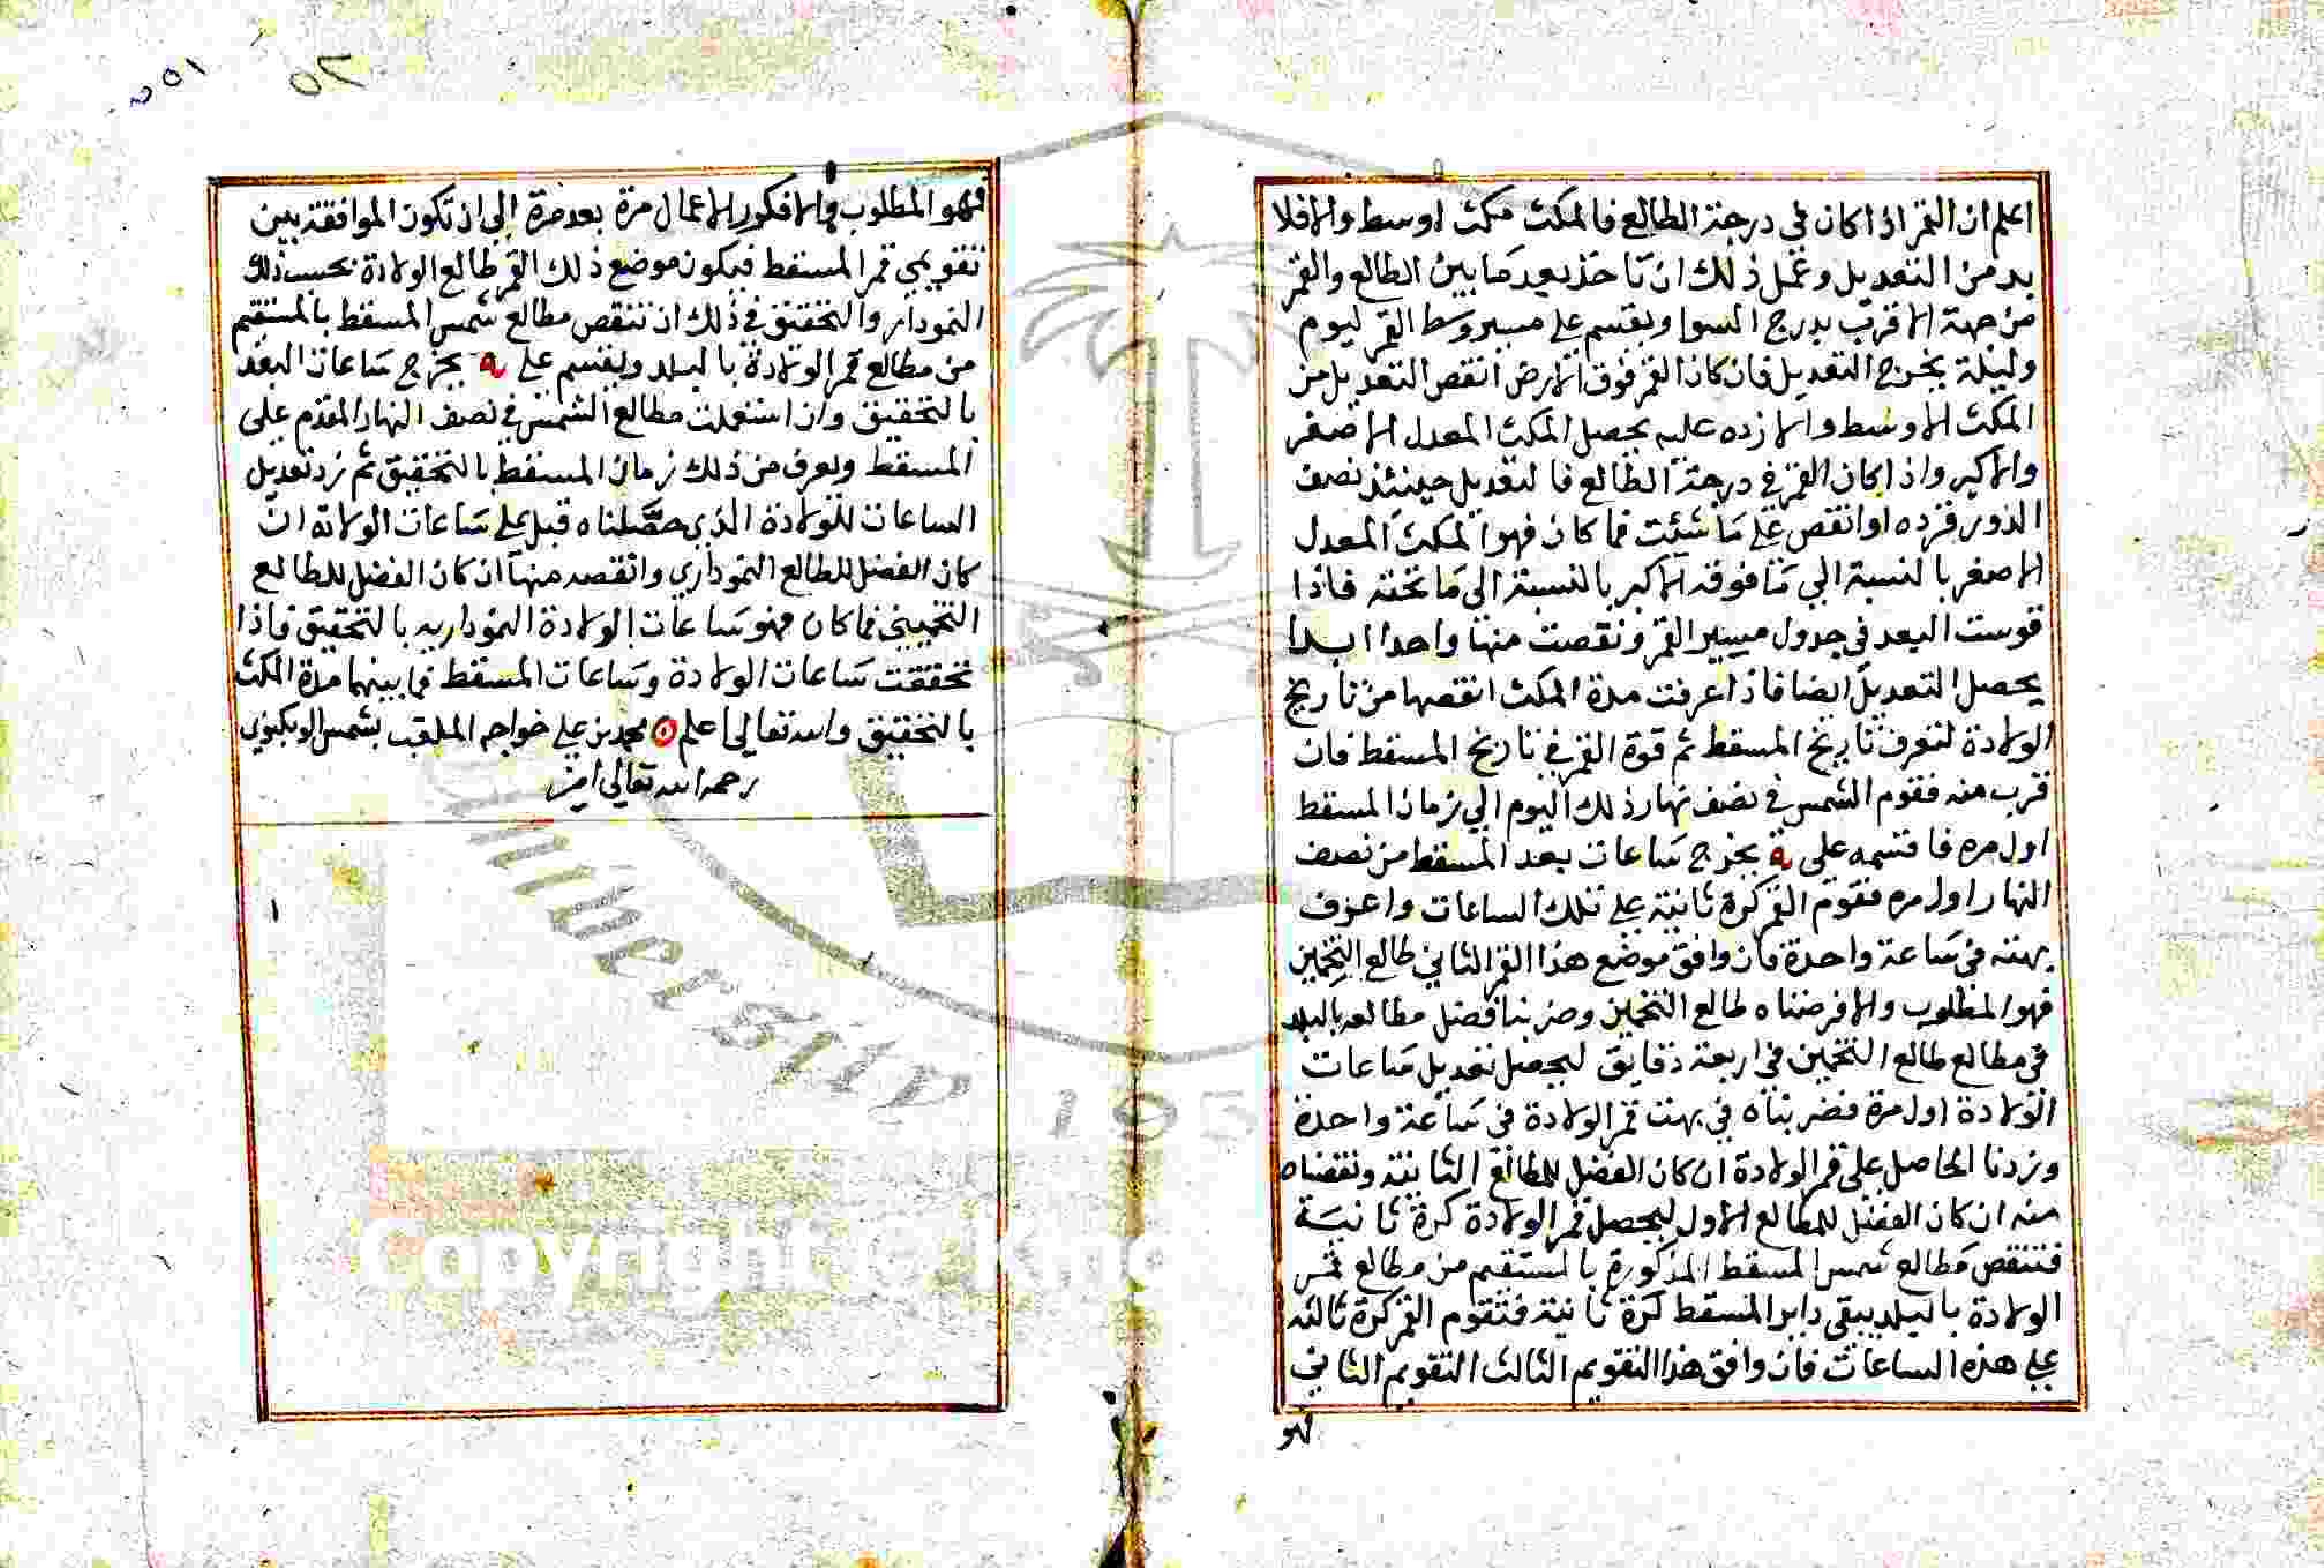 اعلم ان القمر اذا كان في درجة الطالع فالمكث مكث اوسط والافلا
بد من التعديل وعمل ذلك ان تاخذ بعد ما بين الطالع والقمر
من جهة الاقرب بدرج السوا ويقسم على مسير وسط القمر ليوم
وليلة يخرج التعديل فان كان القمر فوق الارض انقص التعديل من
المكث الاوسط والا زده عليه يحصل المكث المعدل الاصغر
والاكبر واذا كان القمر في درجة الطالع فالتعديل حينئذ نصف
الدور فزده او انقص على ما شئت فما كان فهو المكث المعدل
الاصغر بالنسبة الي ما فوقه الاكبر بالنسبة الى ما تحته فاذا
قوست البعد في جدول مسير القمر ونقصت منها واحدا ابدا
يحصل التعديل ايضا فاذا عرفت مدة المكث انقصها من تاريخ
الولادة لتعرف تاريخ المسقط ثم قوة القمر في تاريخ المسقط فان
قرب منه فقوم الشمس في نصف نهار ذلك اليوم الي زمان المسقط
اول مره فاقسمه على يه يخرج ساعات بعد المسقط من نصف
النهار اول مره فقوم القمر كرة ثانية على تلك الساعات واعرف
بهته في ساعة واحدة فان وافق موضع هذا القمر الثاني طالع التخمين
فهو المطلوب والا فرضناه طالع التخمين وضربنا فضل مطالعه بالبلد
في مطالع طالع التخمين في اربعة دقايق ليحصل تعديل ساعات
الولادة اول مرة فضربناه في بهت قمر الولادة في ساعة واحدة
وزدنا الحاصل على قمر الولادة ان كان الفضل للطالع الثانية ونقصناه
منه ان كان الفضل للمطالع الاول ليحصل قمر الولادة كرة ثانية
فننقص مطالع شمس المسقط المذكورة بالمستقيم من مطالع شمس
الولادة بالبلد يبقى داير المسقط كرة ثانية فتقوم القمر كرة ثالثه
على هذه الساعات فان وافق هذا التقويم الثالث التقويم الثاني
فهو
٥٢
فهو المطلوب والا فكرر الاعمال مرة بعد مرة إلي ان تكون الموافقة بين
تقويمي قمر المسقط فيكون موضع ذلك القمر طالع الولادة بحسب ذلك
النمودار والتحقيق في ذلك ان ننقص مطالع شمس المسقط بالمستقيم
من مطالع قمر الولادة بالبلد ويقسم على يه يخرج ساعات البعد
بالتحقيق وان استعملت مطالع الشمس في نصف النهار المقدم على
المسقط ويعرف من ذلك زمان المسقط بالتحقيق ثم زد تعديل
الساعات للولادة الذي حصلناه قبل على ساعات الولادة ان
كان الفضل للطالع النموداري وانقصه منها ان كان الفضل للطالع
التخميني فما كان فهو ساعات الولادة النموداريه بالتحقيق فاذا
تحققت ساعات الولادة وساعات المسقط فما بينهما مدة المكث
بالتحقيق والله تعالي اعلم محمد بن علي خواجه الملقب بشمس الوبكنوي
رحمه الله تعالي امين